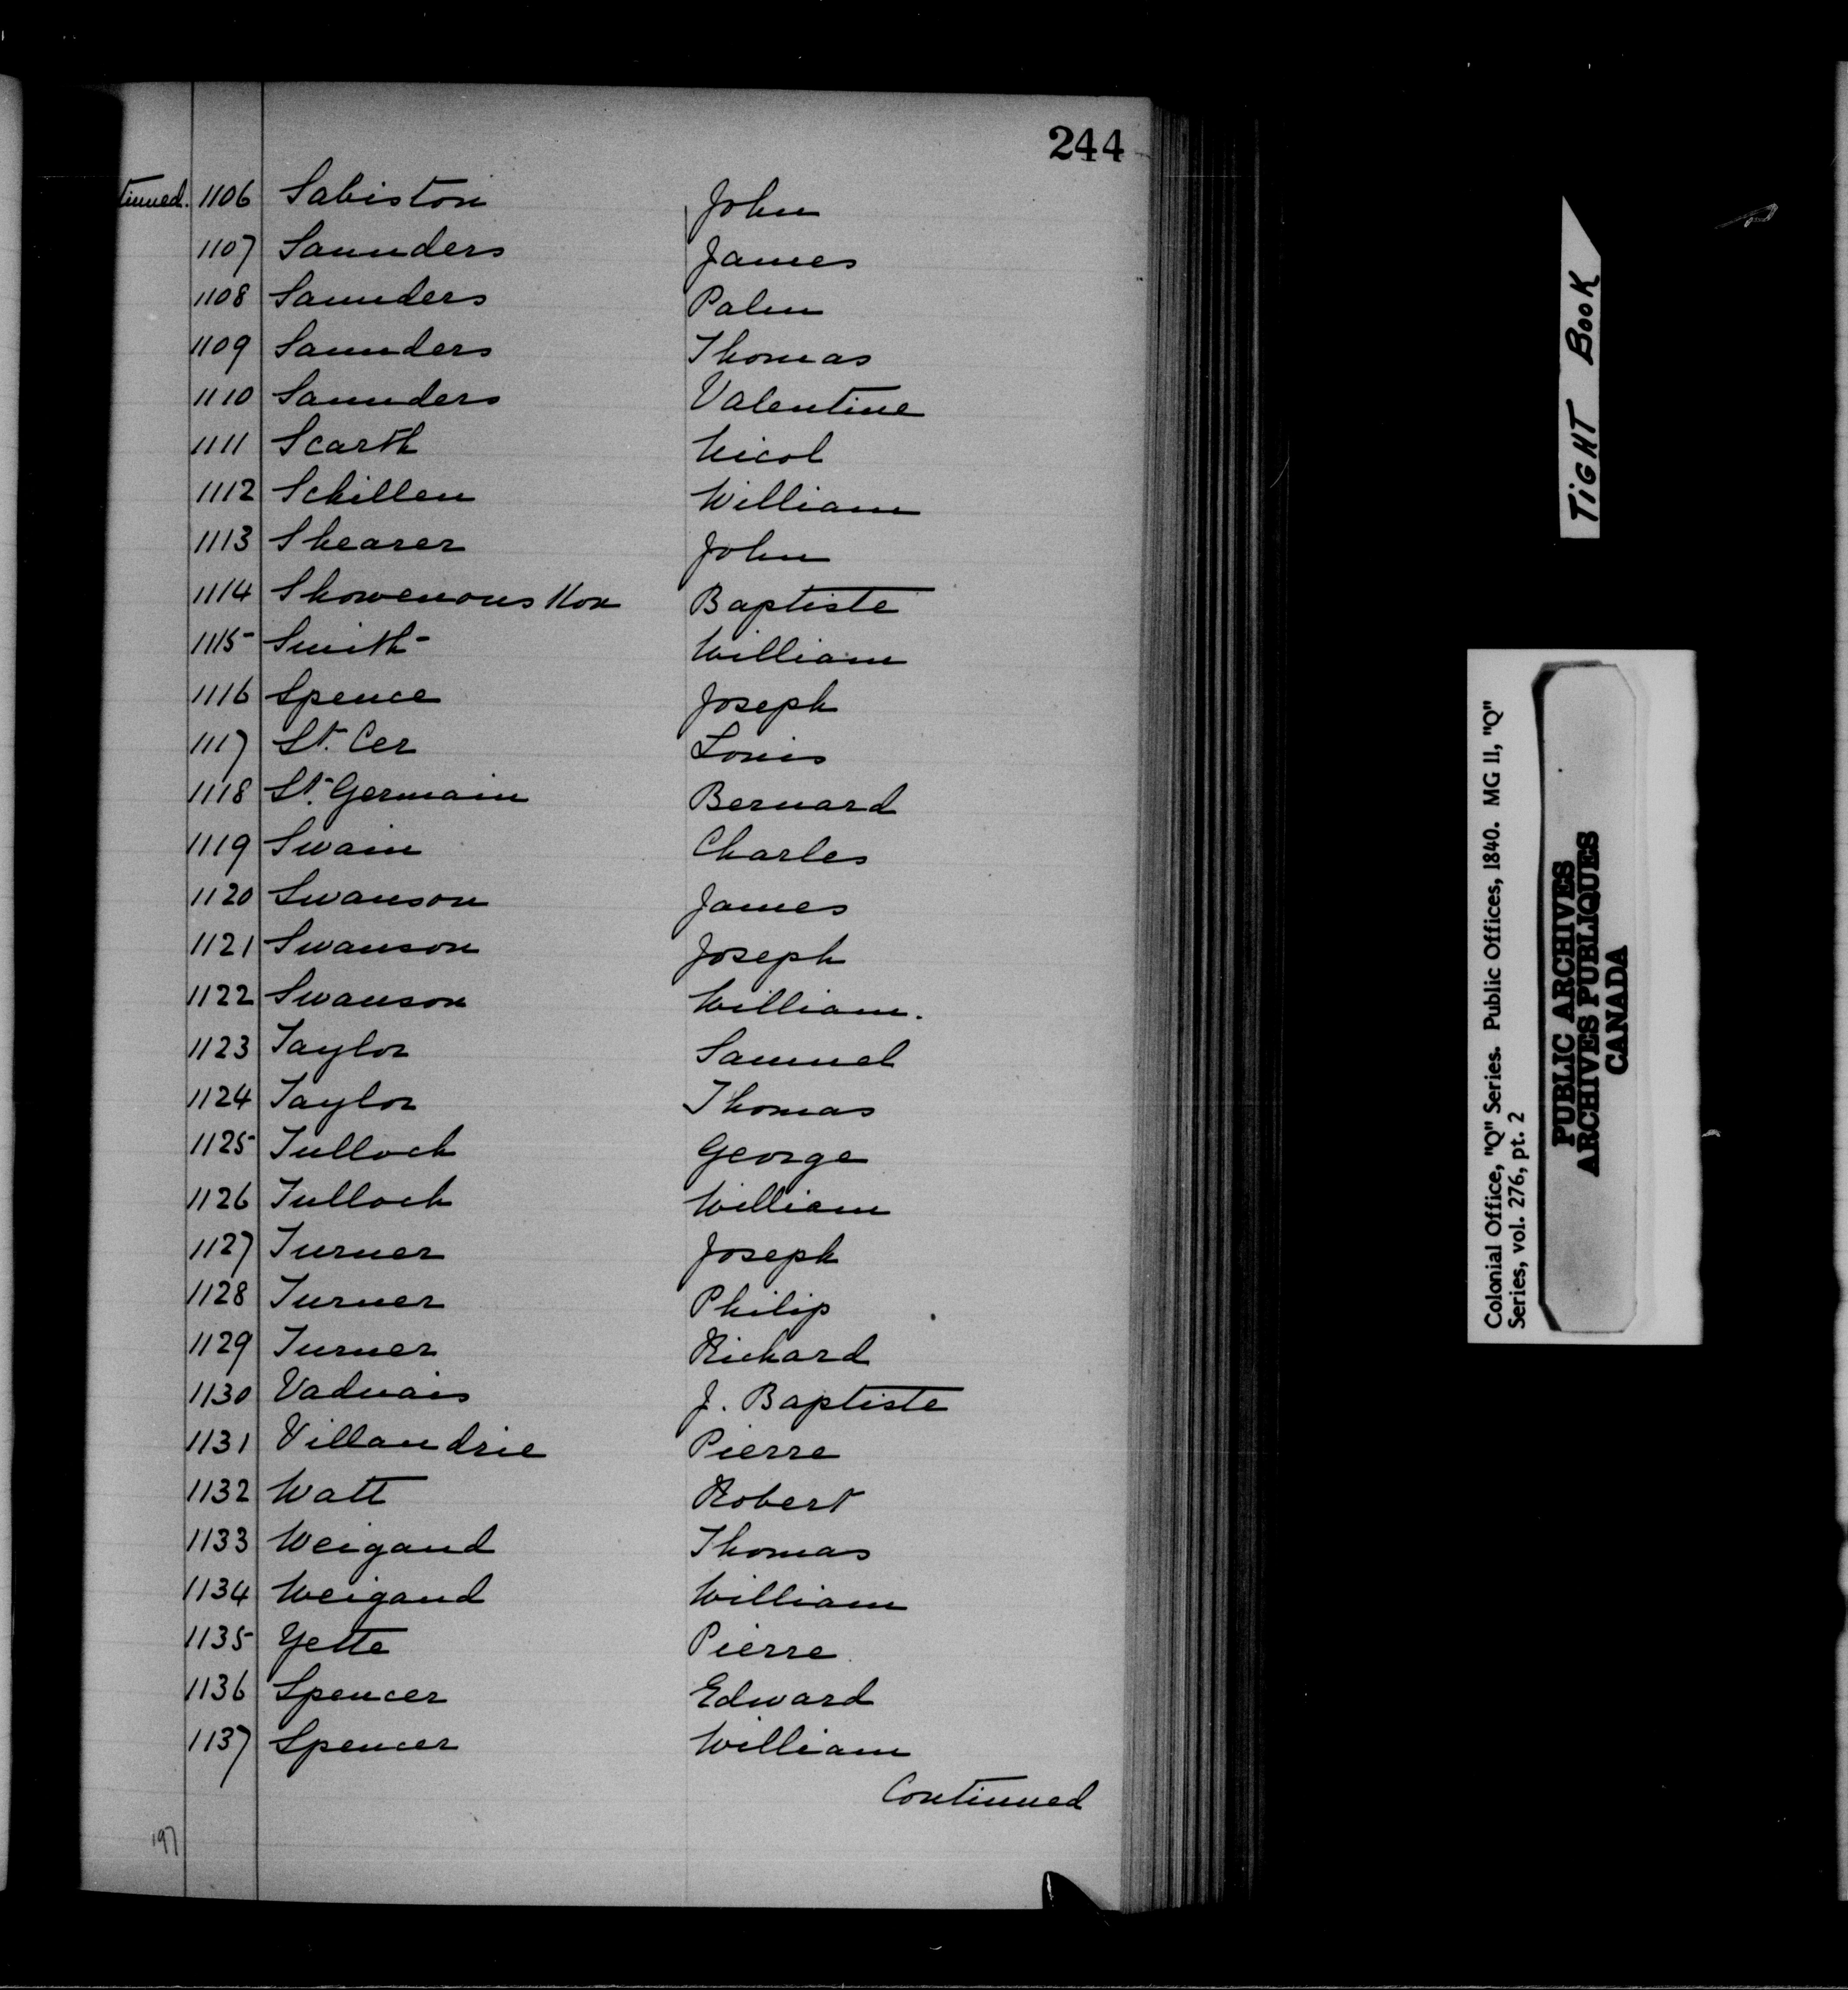 244
tinued. 1106 Sabiston John
1107 Saunders James
1108 Saunders Palm
1109 Saunders Thomas
1110 Saunders Valentine
1111 Scarth Nicol
1112 Schillen William
1113 Shearer John
1114 Showenous Kon Baptiste
1115 Smith William
1116 Spence Joseph
1117 St. Cer Louis
1118 St. Germain Bernard
1119 Swain Charles
1120 Swanson James
1121 Swanson Joseph
1122 Swanson William.
1123 Taylor Samuel
1124 Taylor Thomas
1125 Tulloch George
1126 Tulloch William
1127 Turner Joseph
1128 Turner Philip
1129 Turner Richard
1130 Vadnais J. Baptiste
1131 Villandrie Pierre
1132 Watt Robert
1133 Weigand Thomas
1134 Weigand William
1135 Yette Pierre
1136 Spencer Edward
1137 Spencer William
Continued
197
TIGHT BOOK
Colonial Office, "Q" Series. Public Offices, 1840. MG 11, "Q"
Series, vol. 276, pt. 2
PUBLIC ARCHIVES
ARCHIVES PUBLIQUES
CANADA